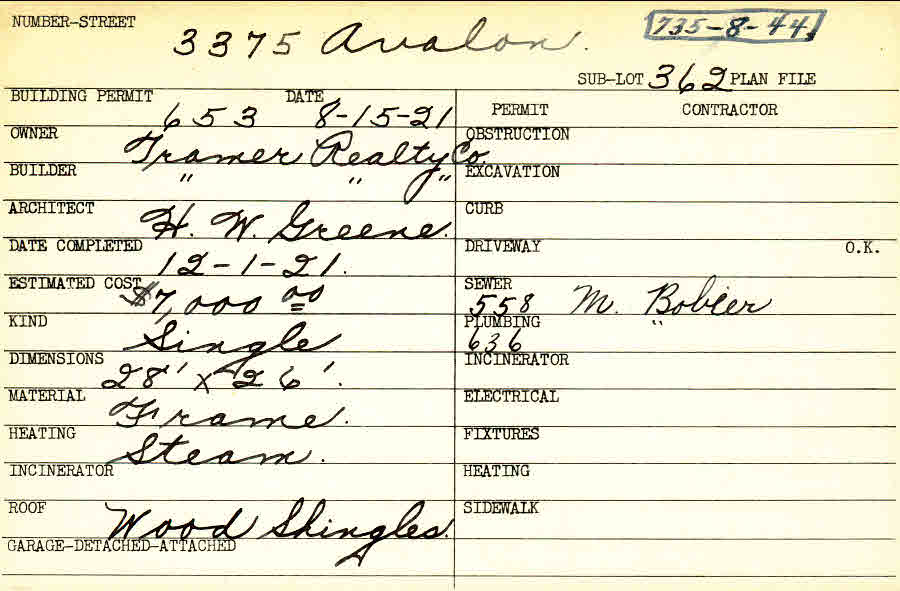 NUMBER-STREET 3375 Avalon. 735-8-44
SUB-LOT 362 PLAN FILE
BUILDING PERMIT 653 DATE 8-15-21
PERMIT CONTRACTOR
OWNER Tramer Realty Co
OBSTRUCTION
BUILDER " " "
EXCAVATION
ARCHITECT H. W. Greene.
CURB
DATE COMPLETED 12-1-21.
DRIVEWAY O.K.
ESTIMATED COST $7,000 00
SEWER 558 M. Bobier
KIND Single
PLUMBING 636 "
DIMENSIONS 28' x 26'.
INCINERATOR
MATERIAL Frame.
ELECTRICAL
HEATING Steam.
FIXTURES
INCINERATOR
HEATING
ROOF Wood Shingles.
SIDEWALK
GARAGE-DETACHED-ATTACHED